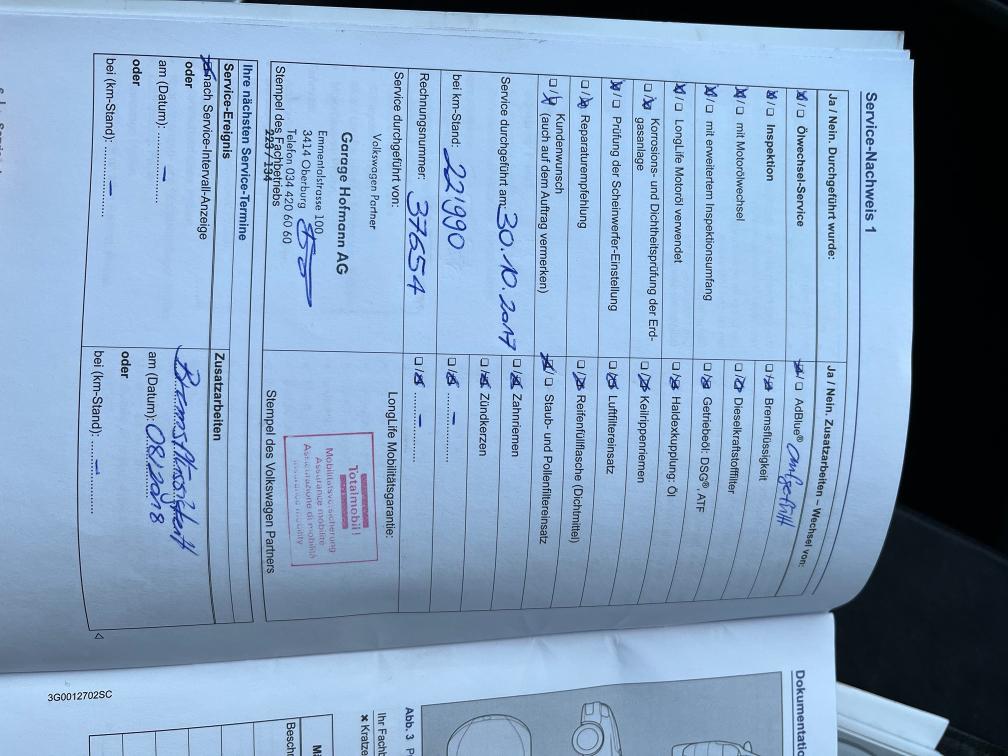 Service-Nachweis 1
Ja / Nein. Durchgeführt wurde:
☒ / ☐ Ölwechsel-Service
☒ / ☐ Inspektion
☒ / ☐ mit Motorölwechsel
☒ / ☐ mit erweitertem Inspektionsumfang
☒ / ☐ LongLife Motoröl verwendet
☐ / ☒ Korrosions- und Dichtheitsprüfung der Erd-
gasanlage
☒ / ☐ Prüfung der Scheinwerfer-Einstellung
☐ / ☒ Reparaturempfehlung
☐ / ☒ Kundenwunsch
(auch auf dem Auftrag vermerken)
Service durchgeführt am: 30.10.2017
bei km-Stand: 22'990
Rechnungsnummer: 37654
Service durchgeführt von:
Volkswagen Partner
Garage Hofmann AG
Emmentalstrasse 100
3414 Oberburg
Telefon 034 420 60 60
Stempel des Fachbetriebs
Ja / Nein. Zusatzarbeiten – Wechsel von:
☒ / ☐ AdBlue® aufgefüllt
☐ / ☒ Bremsflüssigkeit
☐ / ☒ Dieselkraftstofffilter
☐ / ☒ Getriebeöl: DSG®, ATF
☐ / ☒ Haldexkupplung: Öl
☐ / ☒ Keilrippenriemen
☐ / ☒ Luftfiltereinsatz
☐ / ☒ Reifenfüllflasche (Dichtmittel)
☒ / ☐ Staub- und Pollenfiltereinsatz
☐ / ☒ Zahnriemen
☐ / ☒ Zündkerzen
☐ / ☒ ..... – .....
☐ / ☒ ..... – .....
LongLife Mobilitätsgarantie:
Totalmobil!
Mobilitätsversicherung
Assurance mobilité
Assicurazione di mobilità
Stempel des Volkswagen Partners
Ihre nächsten Service-Termine
Service-Ereignis
☒ nach Service-Intervall-Anzeige
oder
am (Datum): ..... – .....
oder
bei (km-Stand): ..... – .....
Zusatzarbeiten
Bremsflüssigkeit
am (Datum): 08/2018
oder
bei (km-Stand): ..... – .....
3G0012702SC
Dokumentatio
Abb. 3
Ihr Fachb
× Kratze
Besch